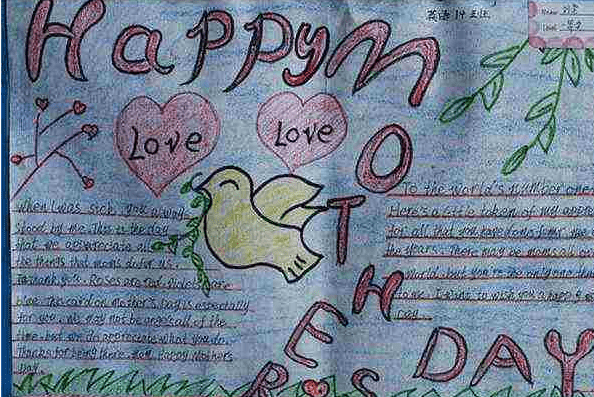 Happy MOTHERS DAY
英语
Name
Love
Love
When I was sick you always
stood by me. This is the day
that we appreciate all
the things that moms do for us.
Roses are red violets are
this card on mother's Day is especially
for you. We may not be angels all of the
time. but we do appreciate what you do.
Thanks for being there mom. Happy Mothers
Day.
To the world's number one
Here's a little token of my appre
for all that you have done for me over
the years. There may be moms all over
world but you're the only one that
to me. I want to wish you a happy
Day